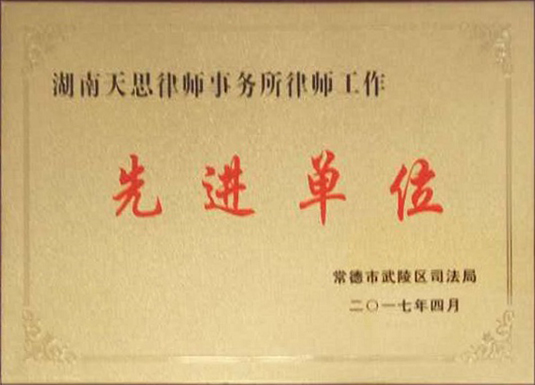 湖南天思律师事务所律师工作
先进单位
常德市武陵区司法局
二〇一七年四月